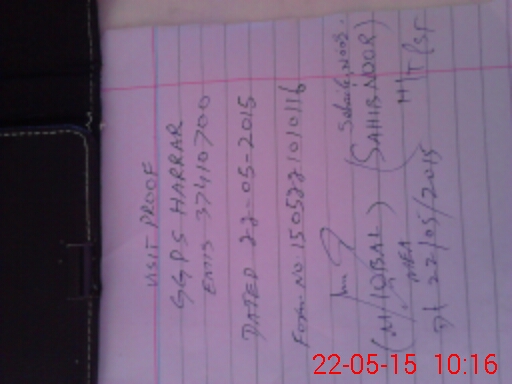 VISIT PROOF
GGPS HARRAR
EMIS 37410700
DATED 22-05-2015
Form No 15052271010116
(M/IQBAL)
MEA
Dt 22/05/2015
(SAHIB NOOR)
22-05-15 10:16